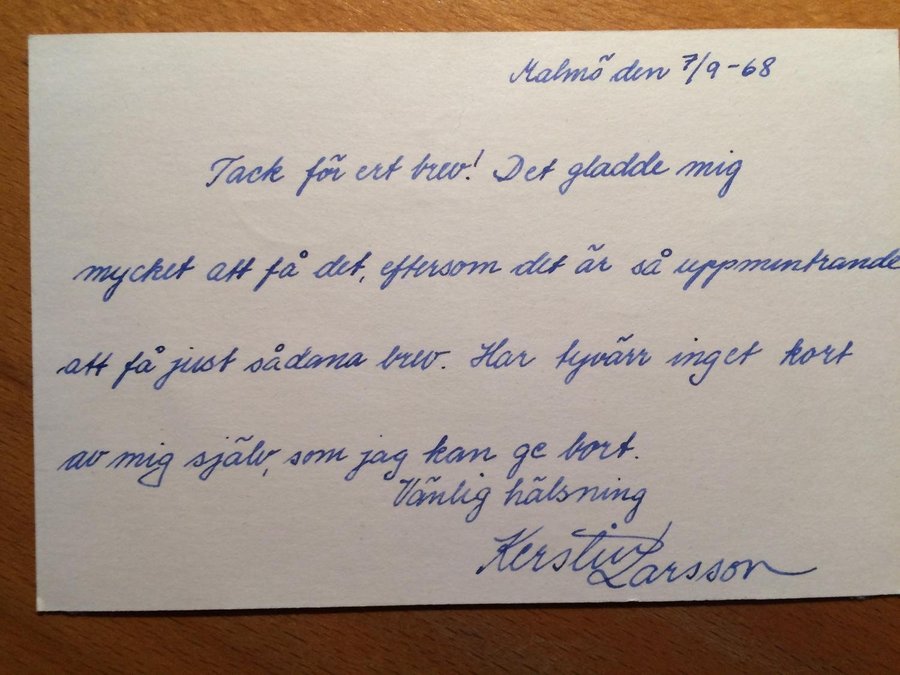 Malmö den 7/9-68
Tack för ert brev! Det gladde mig
mycket att få det, eftersom det är så uppmuntrande
att få just sådana brev. Har tyvärr inget kort
av mig själv, som jag kan ge bort.
Vänlig hälsning
Kerstin Larsson